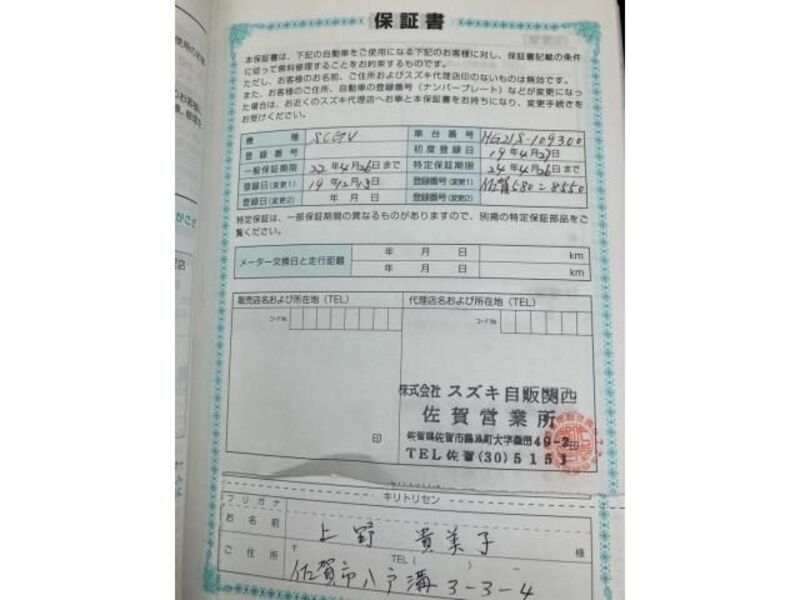 保証書
本保証書は、下記の自動車をご使用になる下記のお客様に対し、保証書記載の条件
に従って無料修理することをお約束するものです。
ただし、お客様のお名前、ご住所およびスズキ代理店印のないものは無効です。
また、お客様のご住所、自動車の登録番号（ナンバープレート）などが変更になっ
た場合は、お近くのスズキ代理店へお車と本保証書をお持ちになり、変更手続きを
お受けください。
機種 SCGV 車台番号 HG21S-109300
登録番号 初度登録日 19年4月27日
一般保証期間 22年4月26日まで 特定保証期間 24年4月26日まで
登録日(変更1) 19年12月13日 登録番号(変更1) 佐賀580こ8550
登録日(変更2) 年 月 日 登録番号(変更2)
特定保証は、一部保証期間の異なるものがありますので、別掲の特定保証部品をご
覧ください。
メーター交換日と走行距離 年 月 日 km
年 月 日 km
販売店名および所在地（TEL） 代理店名および所在地（TEL）
コードNo. コードNo.
株式会社 スズキ自販関西
佐賀営業所
49-2
印 印
TEL佐賀(30)5151
キリトリセン
フリガナ
お名前 上野 貴美子 様
ご住所 〒 TEL( )
佐賀市八戸溝3-3-4